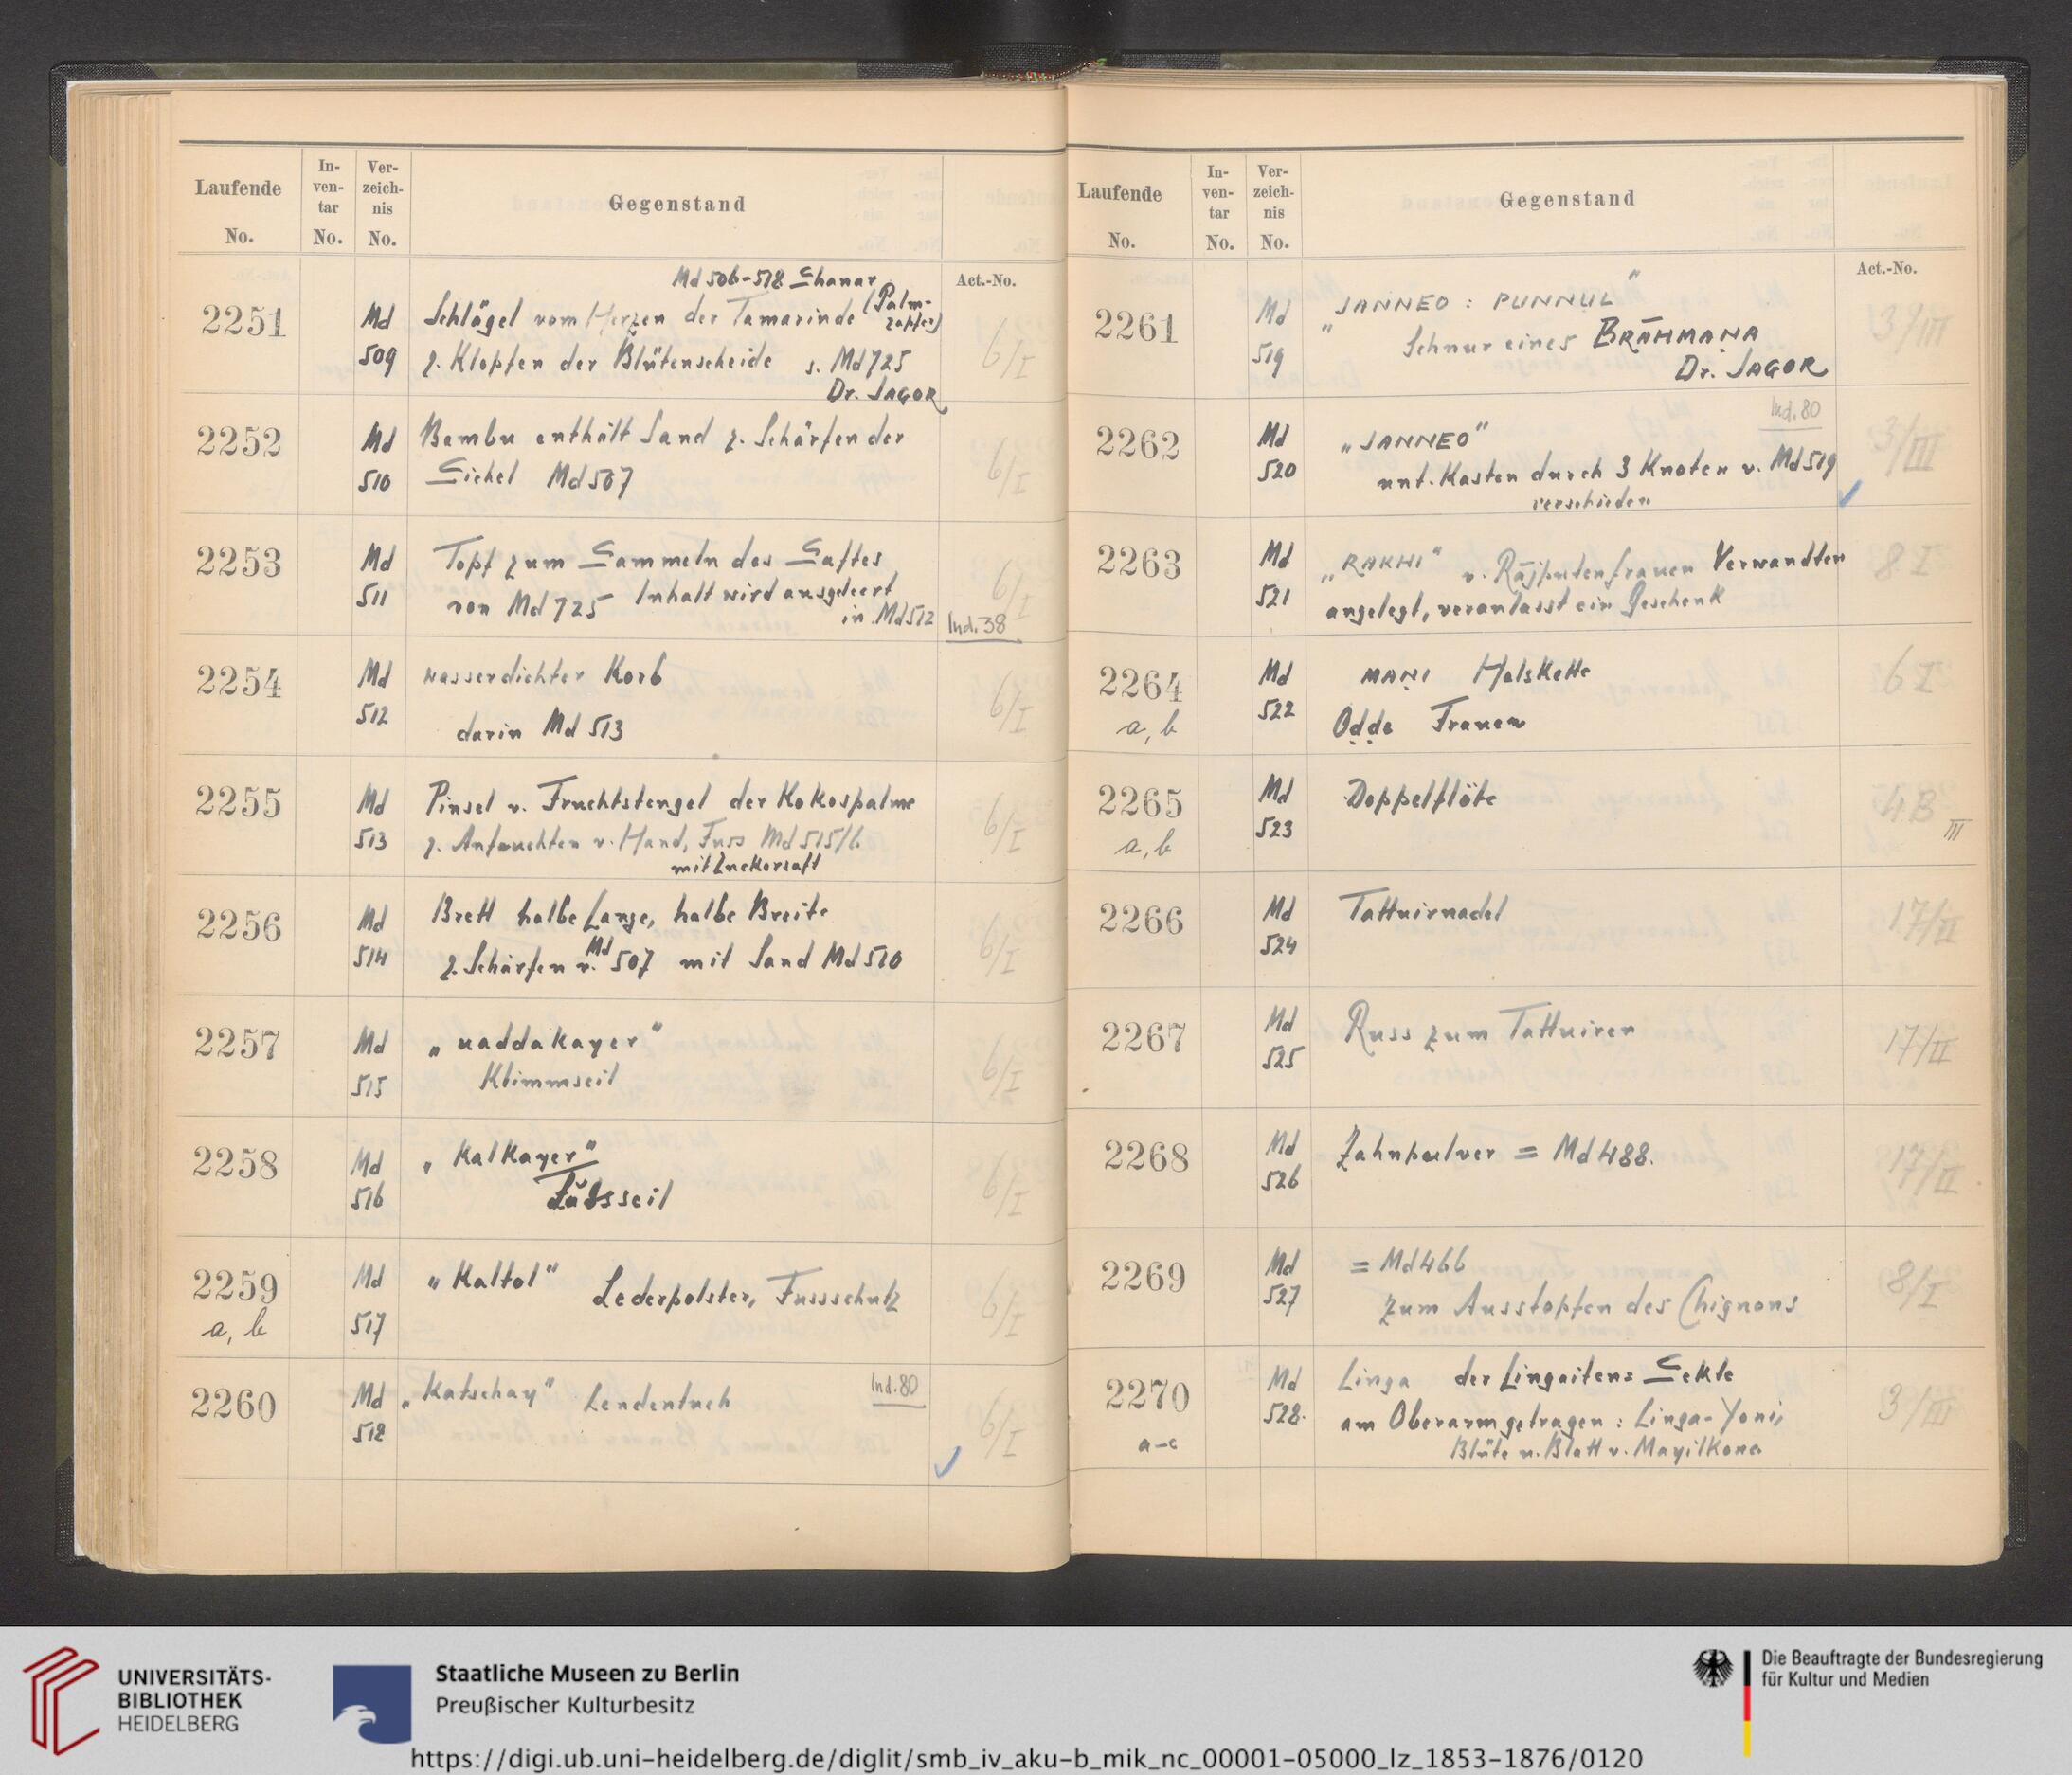 Laufende No.
In-ven-tar No.
Ver-zeich-nis No.
Gegenstand
Act.-No.
Md 506-518 Shanar
2251 Md 509 Schlägel vom Herzen der Tamarinde (Palm-zapfer)
z. Klopfen der Blütenscheide s. Md 725
Dr. JAGOR
6/I
2252 Md 510 Bambu enthält Sand z. Schärfen der
Sichel Md 507
6/I
2253 Md 511 Topf zum Sammeln des Saftes
von Md 725 Inhalt wird ausgeleert
in Md 512
6/I
Ind. 38
2254 Md 512 wasserdichter Korb
darin Md 513
6/I
2255 Md 513 Pinsel v. Fruchtstengel der Kokospalme
z. Anfeuchten v. Hand, Fuss Md 515/6
mit Zuckersaft
6/I
2256 Md 514 Brett halbe Länge, halbe Breite
z. Schärfen v. Md 507 mit Sand Md 510
6/I
2257 Md 515 „uaddakayer"
Klimmseil
6/I
2258 Md 516 „Kalkayer"
Fussseil
6/I
2259 a, b Md 517 „Kaltol" Lederpolster, Fussschutz
6/I
2260 Md 518 „Katschay" Lendentuch
Ind. 80
6/I
Laufende No.
In-ven-tar No.
Ver-zeich-nis No.
Gegenstand
Act.-No.
2261 Md 519 „JANNEO : PUNNUL"
Schnur eines BRĀHMAṆA
Dr. JAGOR
3/III
Ind. 80
2262 Md 520 „JANNEO"
unt. Kasten durch 3 Knoten v. Md 519
verschieden
3/III
2263 Md 521 „RAKHI" v. Rājputenfrauen Verwandten
angelegt, veranlasst ein Geschenk
8 I
2264 a, b Md 522 MAṆI Halskette
Oḍḍe Frauen
6 I
2265 a, b Md 523 Doppelflöte
4B III
2266 Md 524 Tattuirnadel
17/II
2267 Md 525 Russ zum Tattuiren
17/II
2268 Md 526 Zahnpulver = Md 488.
17/II
2269 Md 527 = Md 466
zum Ausstopfen des Chignons
8/I
2270 a-c Md 528. Linga der Lingaiten= Sekte
am Oberarm getragen : Linga-Yoni,
Blüte u. Blatt v. Mayilkona
3/III
UNIVERSITÄTS-
BIBLIOTHEK
HEIDELBERG
Staatliche Museen zu Berlin
Preußischer Kulturbesitz
Die Beauftragte der Bundesregierung
für Kultur und Medien
https://digi.ub.uni-heidelberg.de/diglit/smb_iv_aku-b_mik_nc_00001-05000_lz_1853-1876/0120